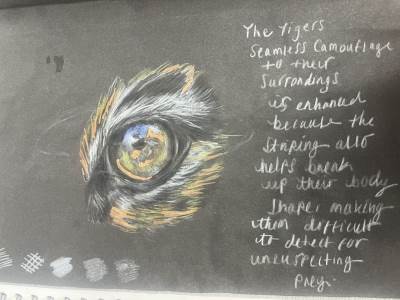 The Tigers
Seamless Camouflage
to their
Surrondings
is enhanced
because the
Striping also
helps break
up their body
Shape, making
them difficult
to detect for
unexspecting
Prey.